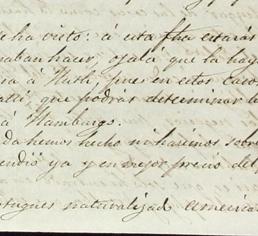 e ha visto: á esta fha estarás
aban hacer, ojalá que la hag
ia á Hath, pues en estos caso
que podrás determinar le
á Hamburgo.
da hemos hecho ni hicimos sobre
endió ya y en mejor precio del p
ortugues naturalizad america